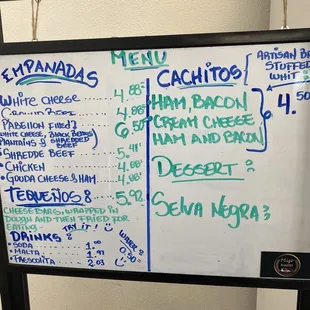 MENU
EMPANADAS
WHITE CHEESE 4.88
GROUND BEEF 4.88
PABELLON FRIED?
WHITE CHEESE, BLACK BEANS 6.50
PLANTAINS & SHREDDED
BEEF
SHREDDE BEEF 5.41
CHICKEN 4.88
GOUDA CHEESE & HAM 4.88
TEQUEÑOS 8 5.92
CHEESE BARS, WRAPPED IN
DOUGH AND THEN FRIED FOR
EATING. TRY IT!
DRINKS: WATER
SODA 1.00 0.50
MALTA 1.97
FRESCOLITA 2.03
CACHITOS
ARTISAN
STUFFED
WHIT
HAM, BACON 4.50
CREAM CHEESE
HAM AND BACON
DESSERT:
SELVA NEGRA